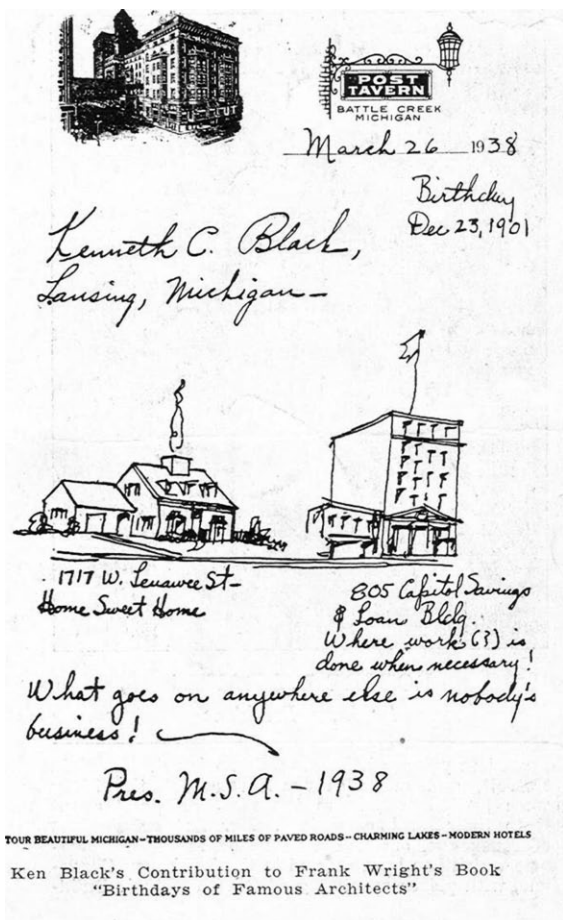 POST
TAVERN
BATTLE CREEK
MICHIGAN
March 26 1938
Birthday
Dec 23, 1901
Kenneth C. Black,
Lansing, Michigan—
1717 W. Lenawee St—
Home Sweet Home
805 Capitol Savings
& Loan Bldg.
Where work (?) is
done when necessary!
What goes on anywhere else is nobody's
business!
Pres. M.S.A. — 1938
TOUR BEAUTIFUL MICHIGAN—THOUSANDS OF MILES OF PAVED ROADS—CHARMING LAKES—MODERN HOTELS
Ken Black's Contribution to Frank Wright's Book
"Birthdays of Famous Architects"